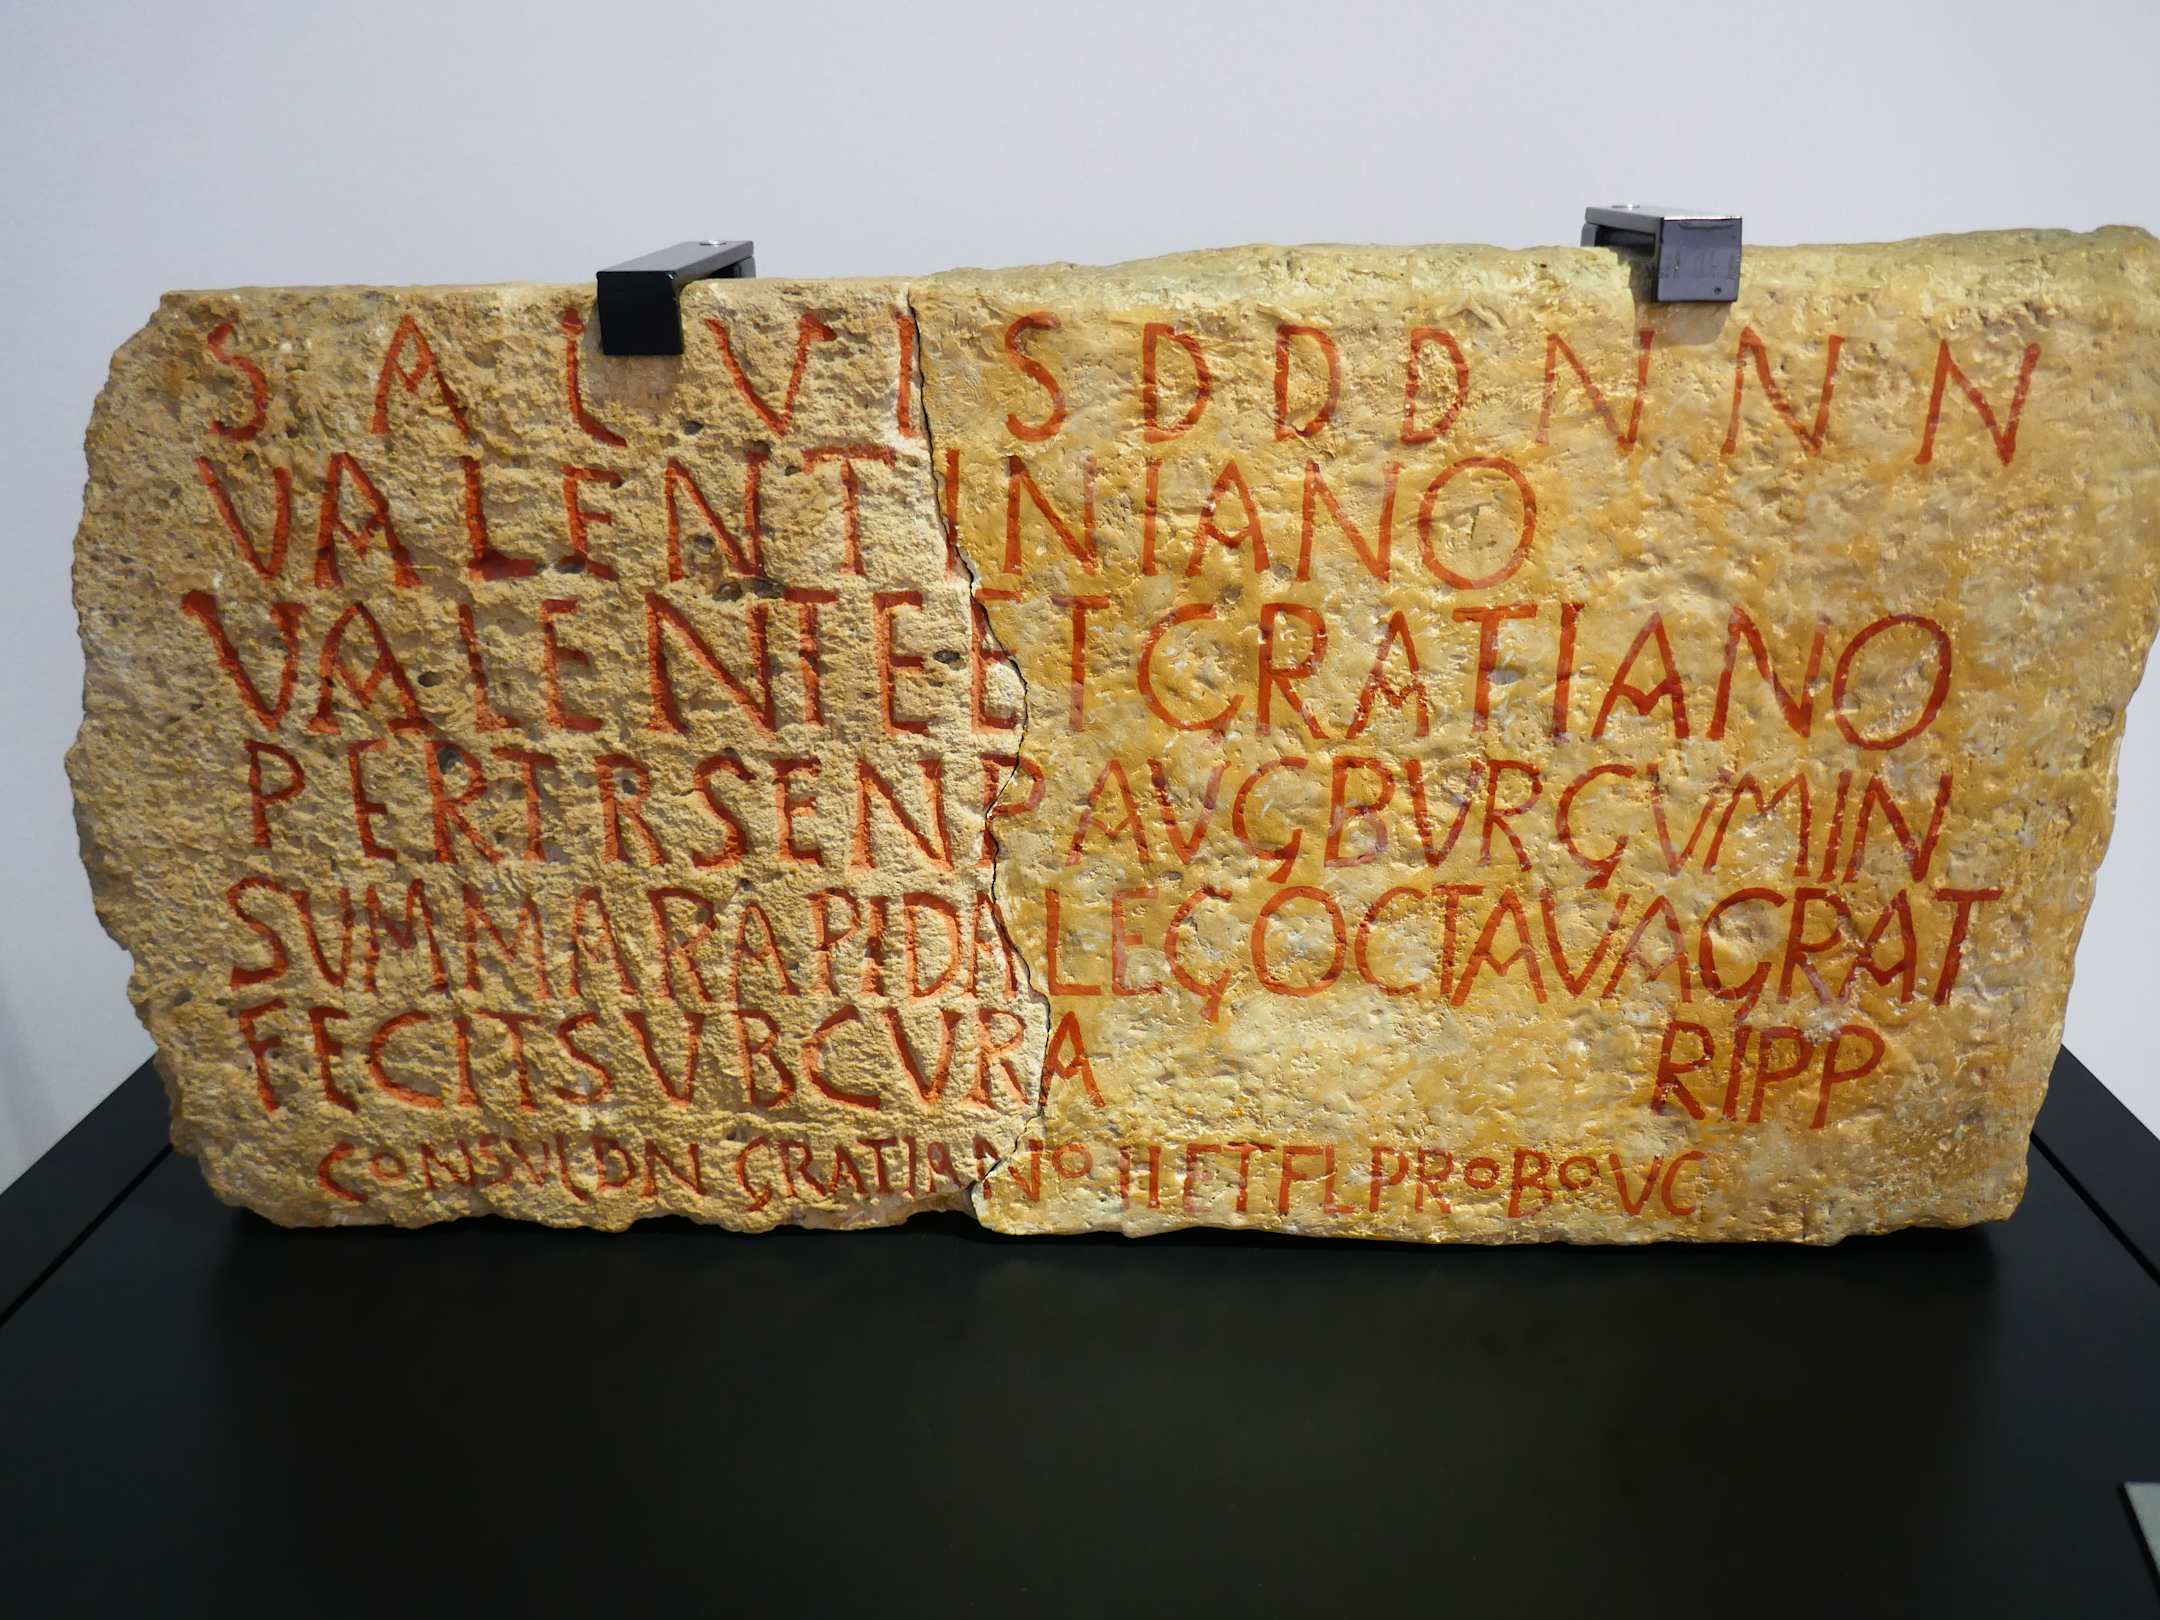 SALVIS DDD NNN
VALENTINIANO
VALENTE ET GRATIANO
PERTR SEN P AVG BVRGVM IN
SUMMA RAPIDA LEG OCTAVA GRAT
FECIT SVB CVRA RIPP
CONSVL DN GRATIANO II ET FL PROBO VC